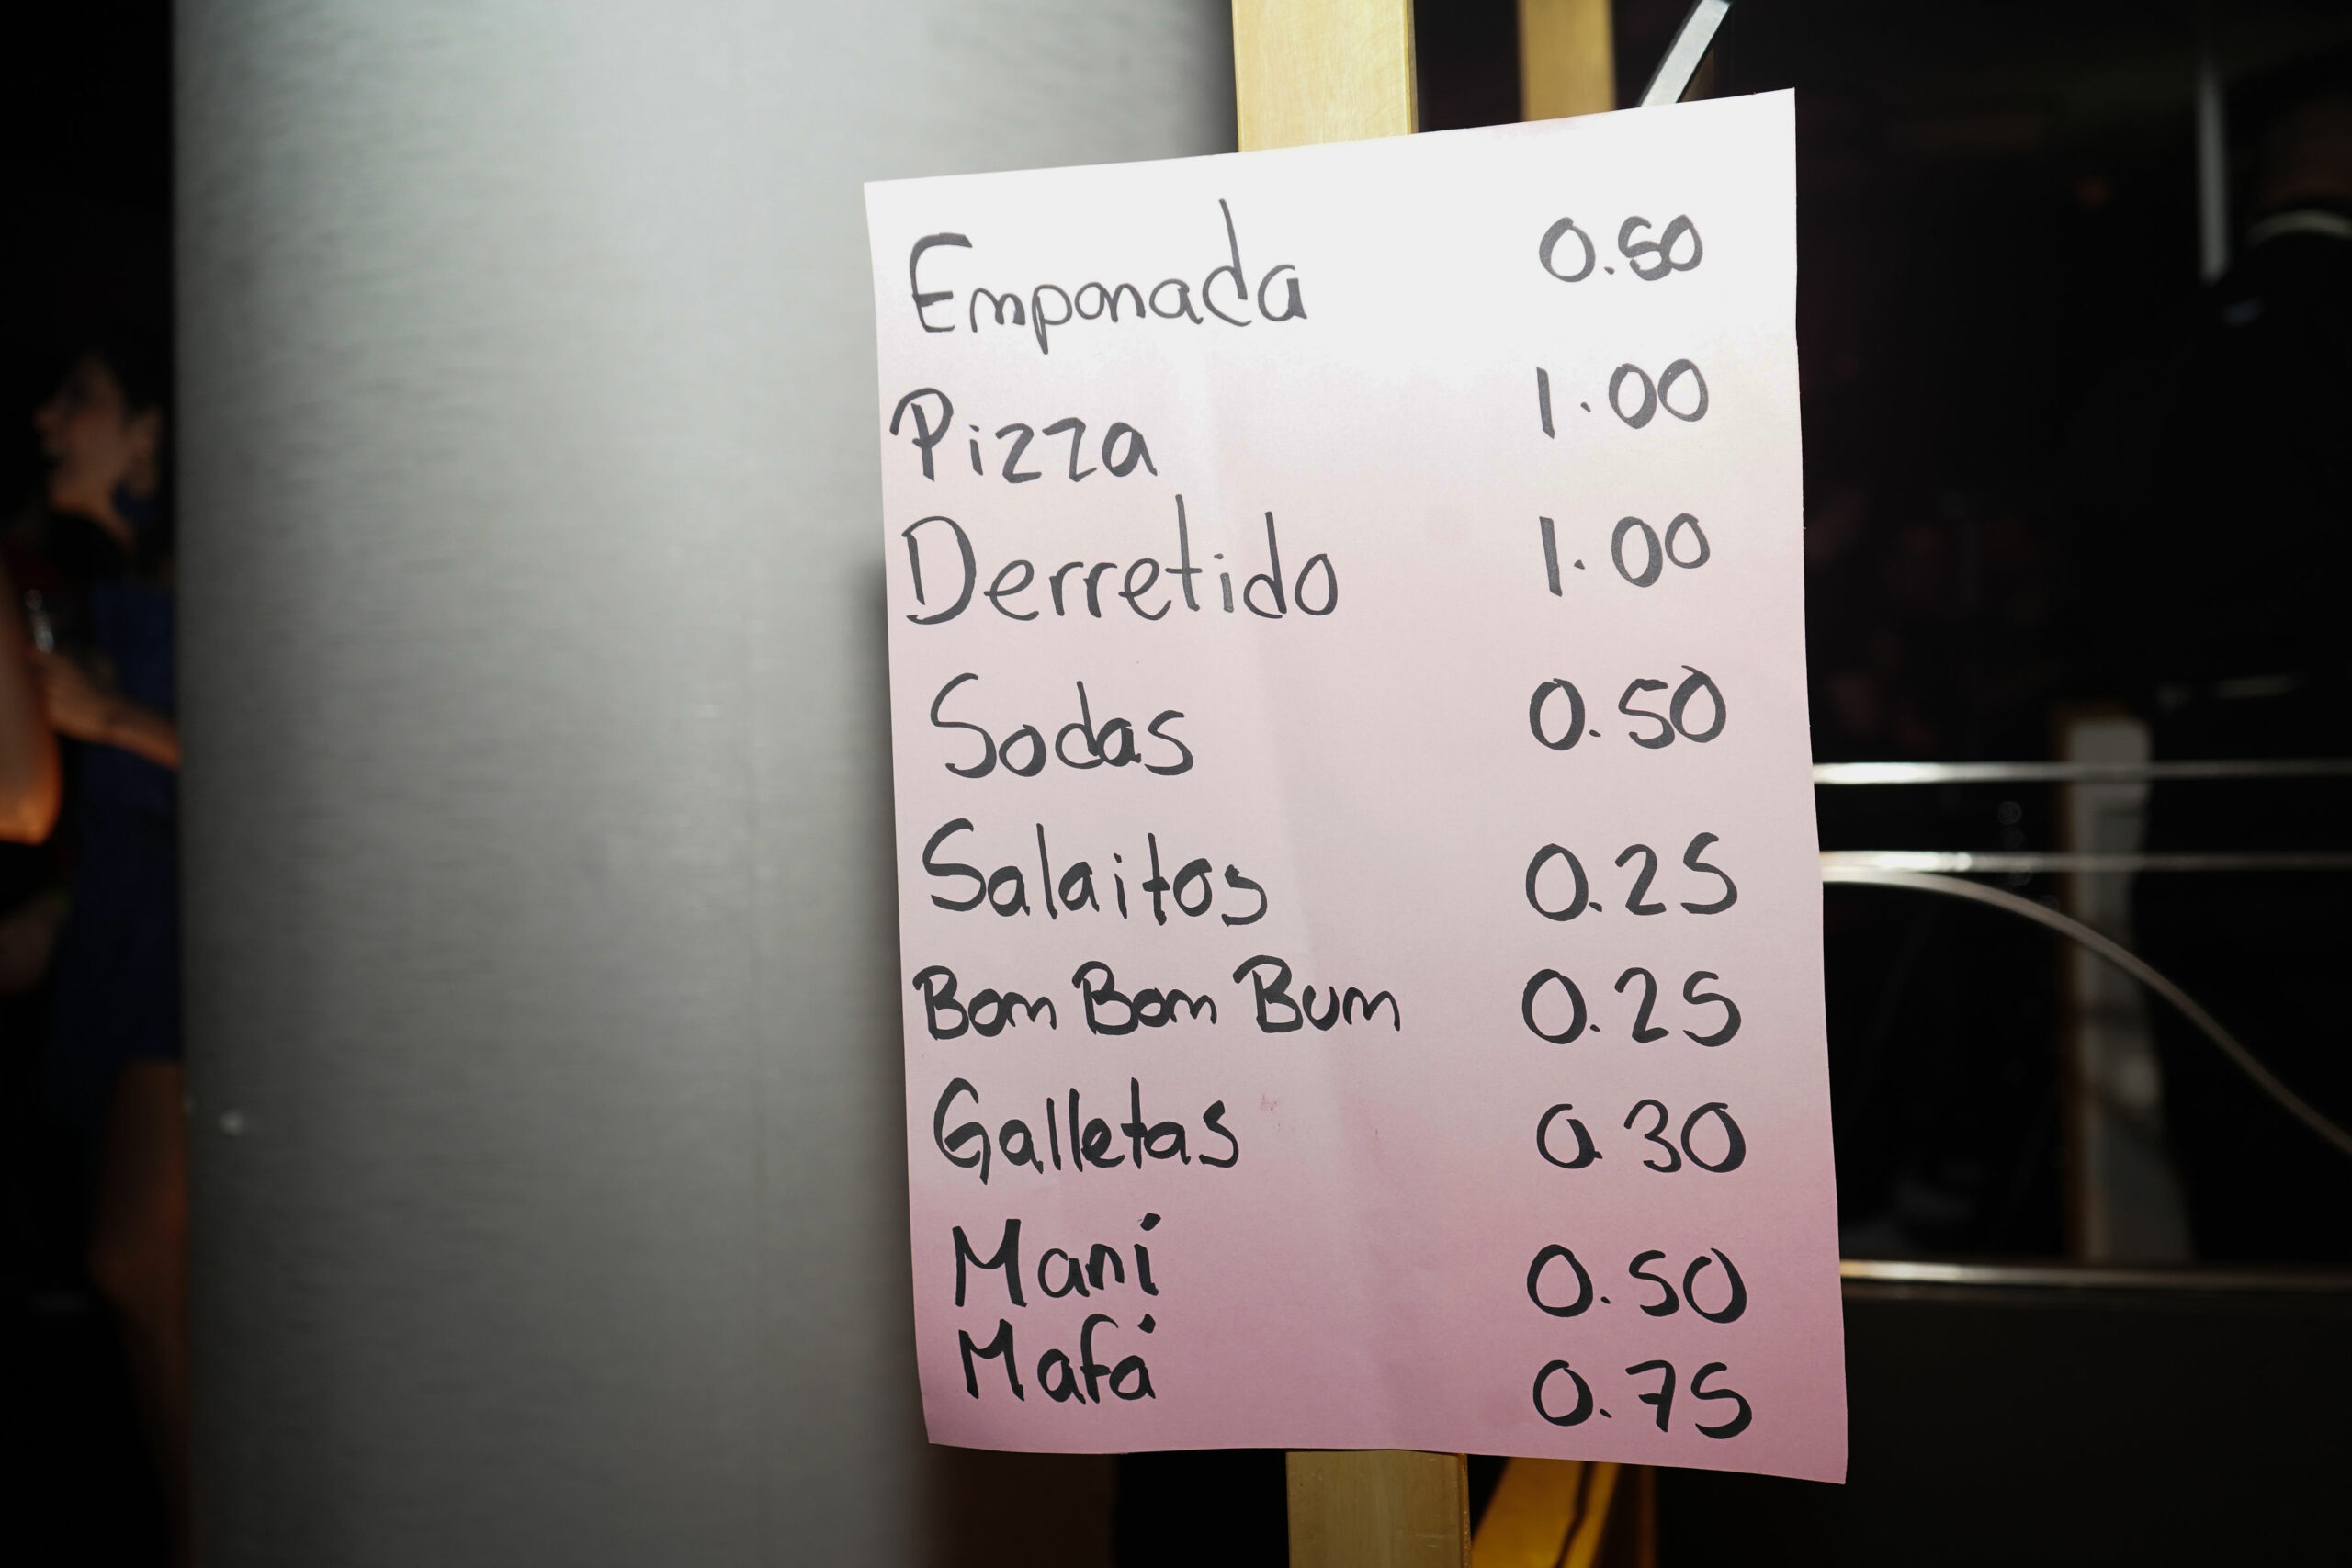 Empanada 0.50
Pizza 1.00
Derretido 1.00
Sodas 0.50
Salaitos 0.25
Bom Bom Bum 0.25
Galletas 0.30
Maní 0.50
Mafá 0.75